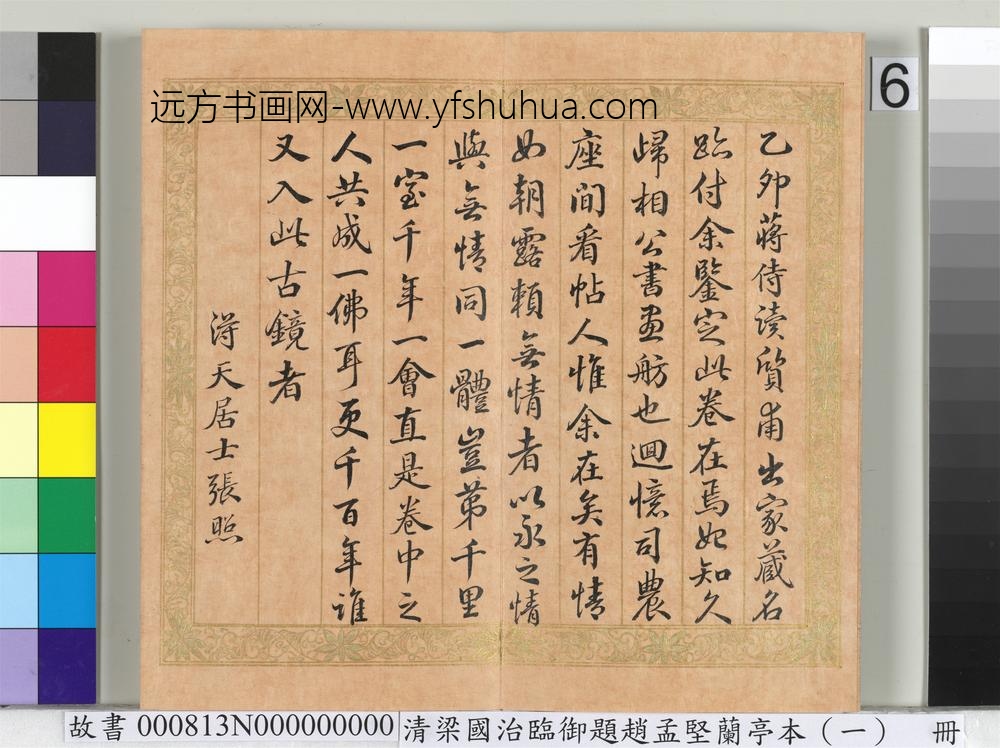 远方书画网-www.yfshuhua.com
6
乙卯蔣侍讀質甫出家藏名
跡付余鑒定此卷在焉始知久
歸相公書畫舫也迴憶司農
座間看帖人惟余在矣有情
如朝露賴無情者以永之情
與無情同一體豈第千里
一室千年一會直是卷中之
人共成一佛耳更千百年誰
又入此古鏡者
得天居士張照
故書 000813N000000000 清梁國治臨御題趙孟堅蘭亭本(一) 冊